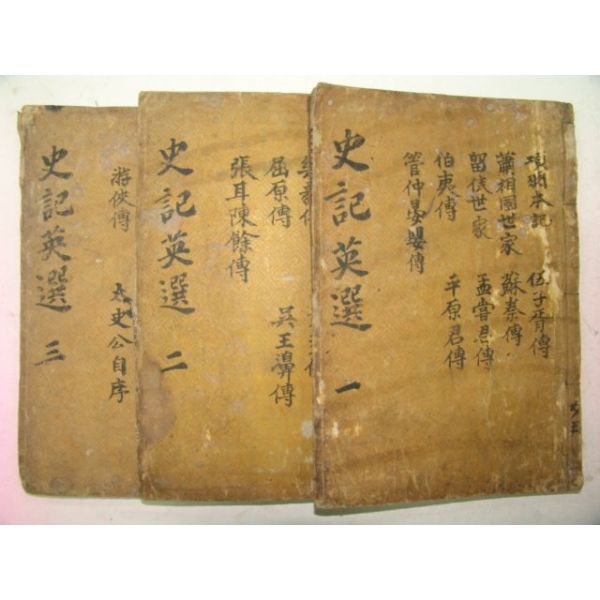 史記英選 一
項羽本記 伍子胥傳
蕭相國世家 蘇秦傳
留侯世家 孟嘗君傳
伯夷傳 平原君傳
管仲晏嬰傳
共三
史記英選 二
屈原傳 吳王濞傳
張耳陳餘傳
史記英選 三
游俠傳 太史公自序